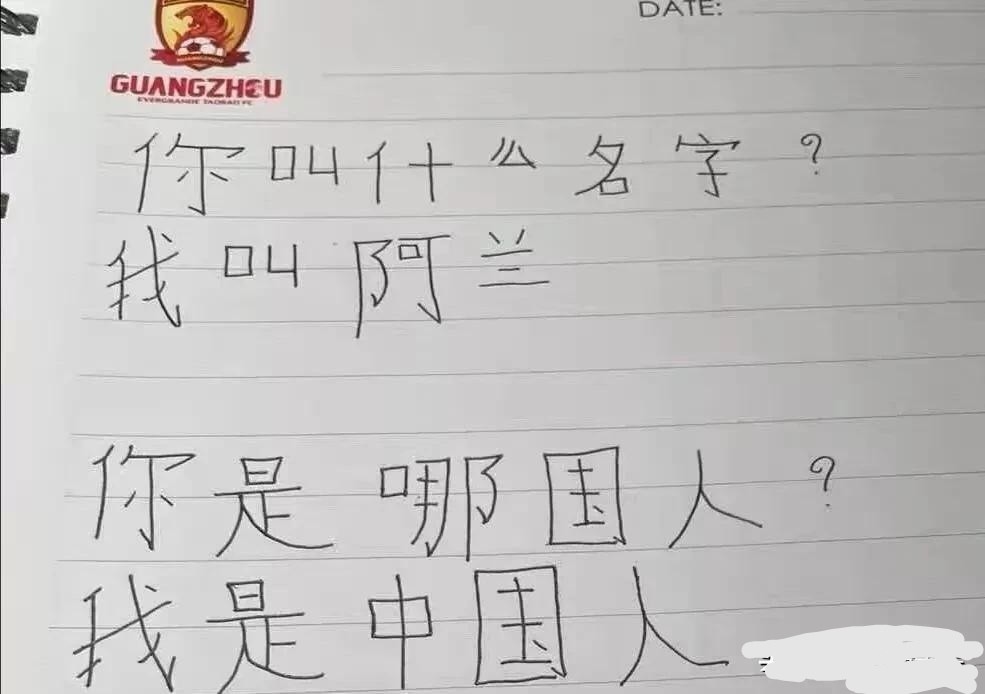 DATE:
GUANGZHOU
EVERGRANDE TAOBAO FC
你叫什么名字?
我叫阿兰
你是哪国人?
我是中国人